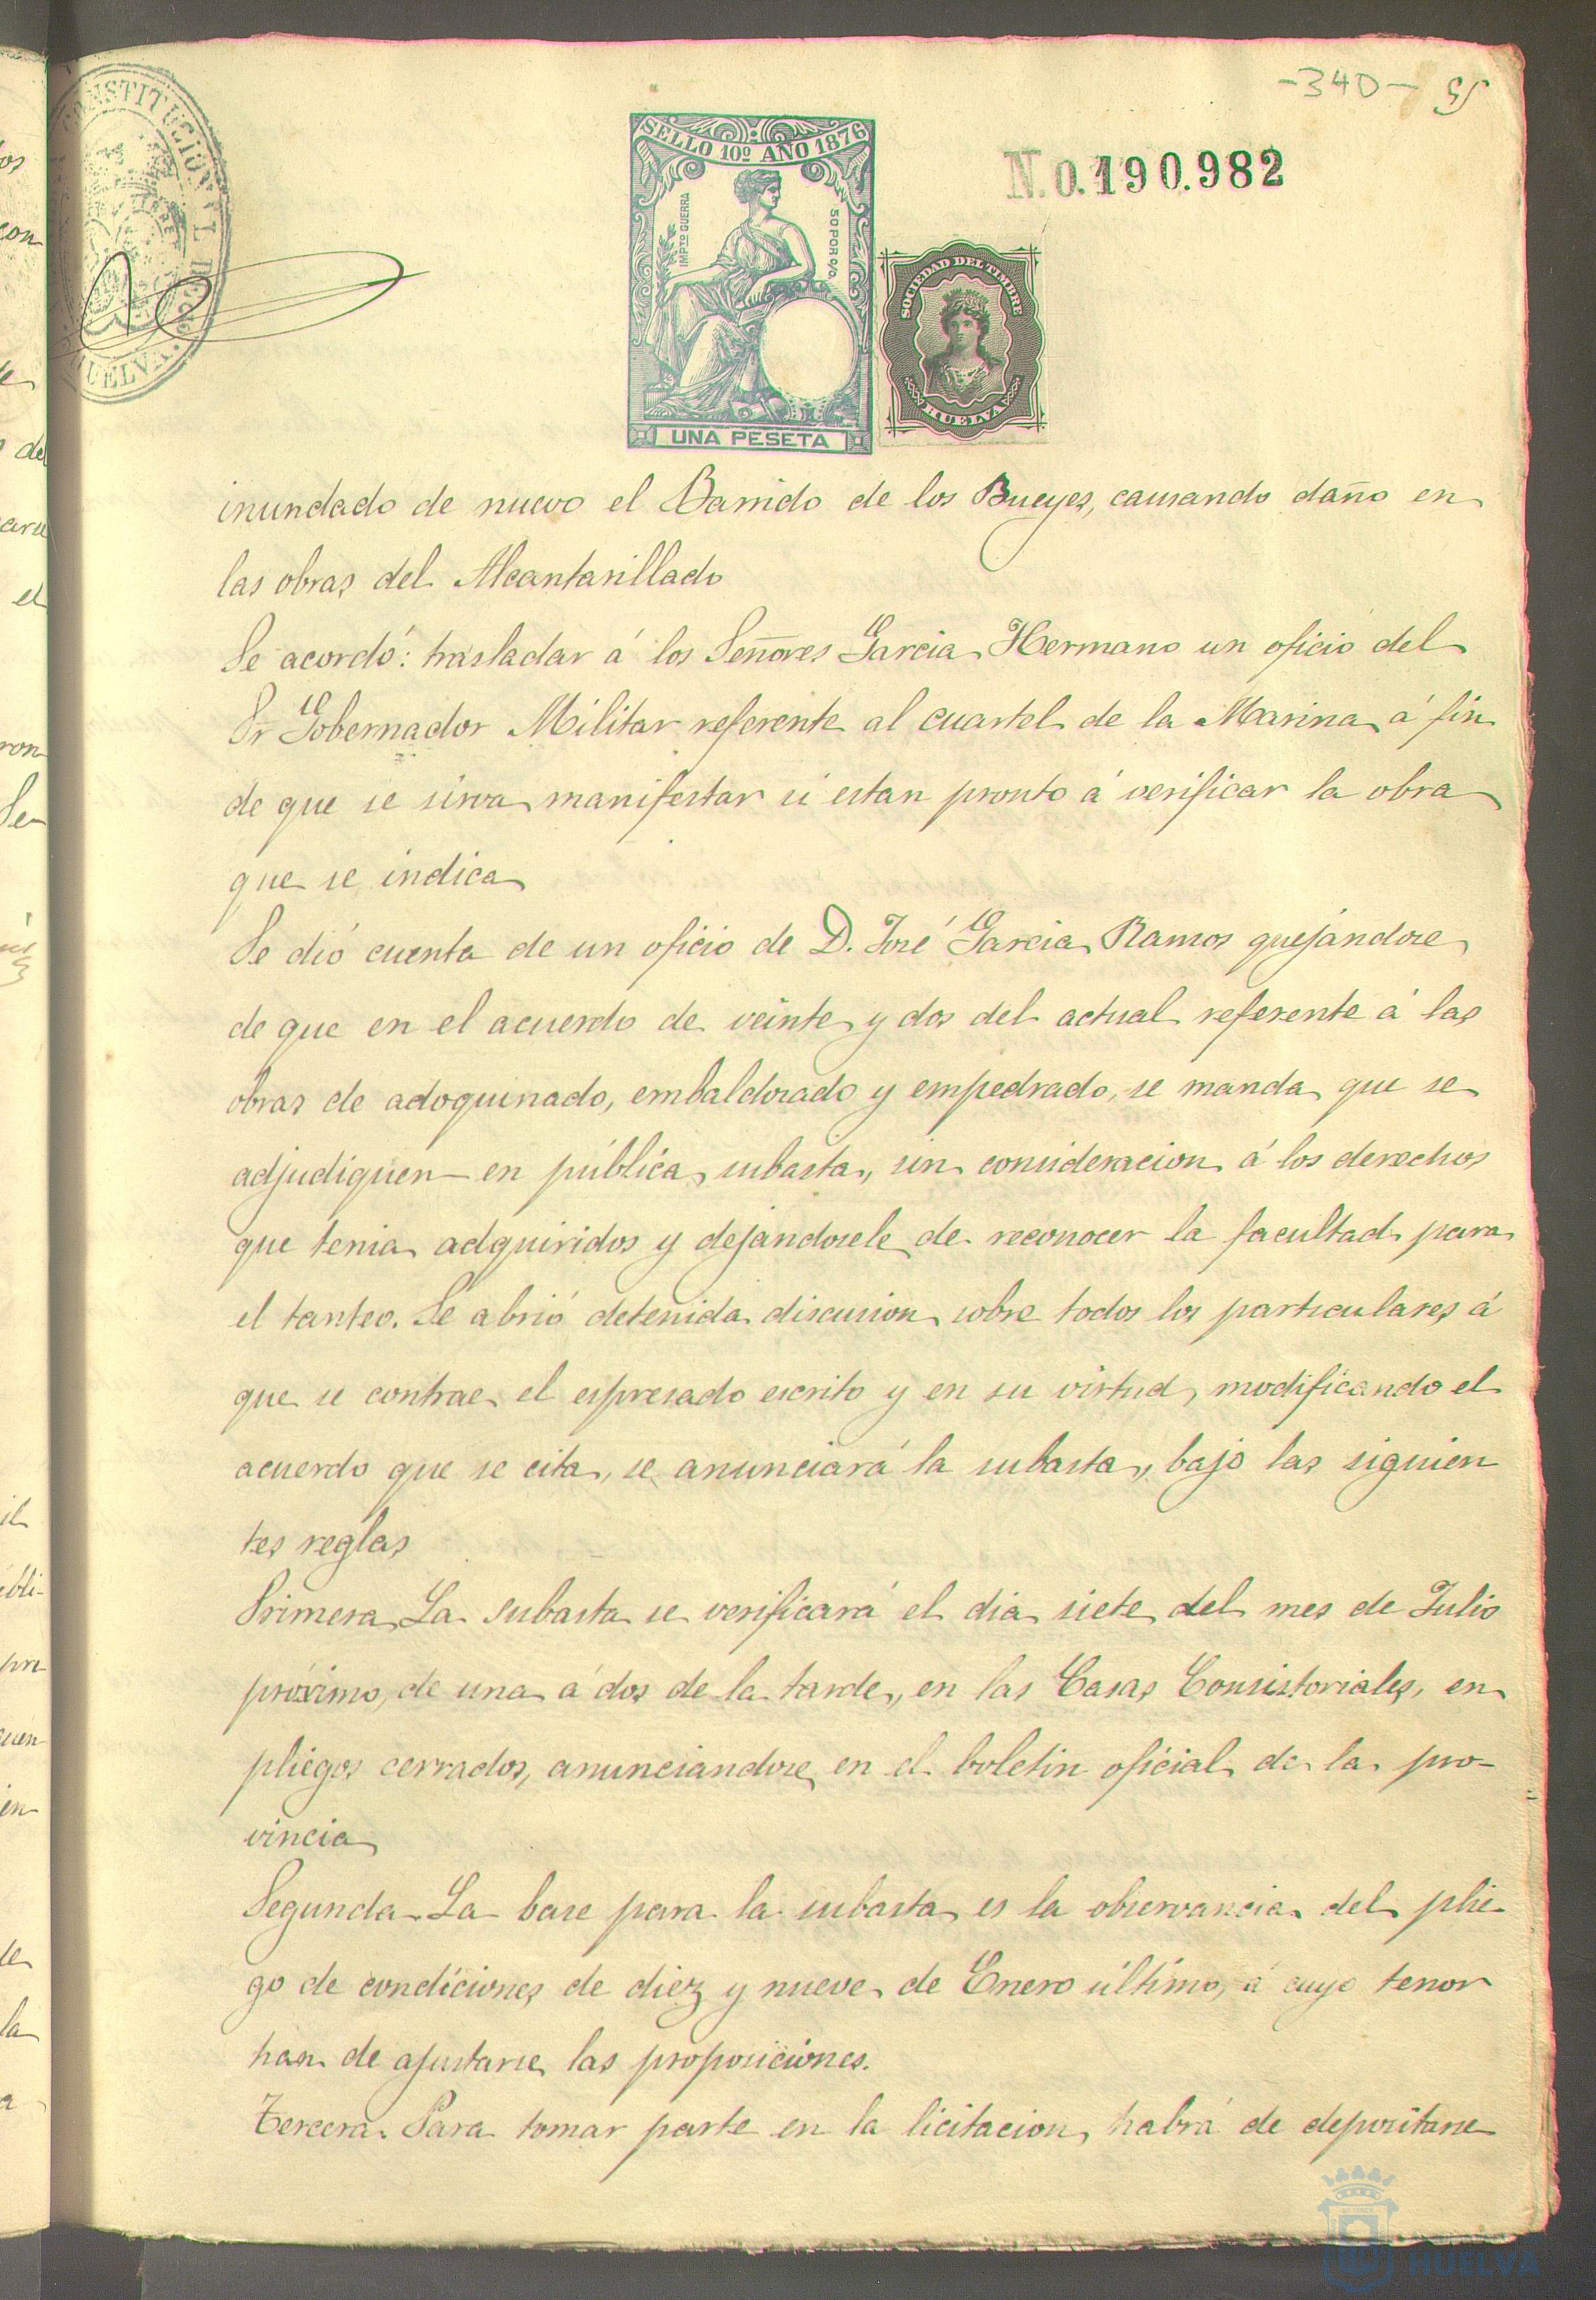 -340- 95
CONSTITUCIONAL DE
HUELVA.
SELLO 10º AÑO 1876
IMPTO GUERRA
50 POR O/O.
UNA PESETA
N.0.190.982
SOCIEDAD DEL TIMBRE
HUELVA
inundado de nuevo el Barrido de los Bueyes, causando daño en
las obras del Alcantarillado
Se acordó: trasladar á los Señores Garcia Hermano un oficio del
Sr Gobernador Militar referente al cuartel de la Marina á fin
de que se sirva manifestar si estan pronto á verificar la obra
que se indica
Se dió cuenta de un oficio de D. José Garcia Ramos quejándose
de que en el acuerdo de veinte y dos del actual referente á las
obras de adoquinado, embaldosado y empedrado, se manda que se
adjudiquen en pública subasta, sin consideracion á los derechos
que tenia adquiridos y dejandosele de reconocer la facultad para
el tanteo. Se abrió detenida discusion sobre todos los particulares á
que se contrae el espresado escrito y en su virtud, modificando el
acuerdo que se cita, se anunciará la subasta, bajo las siguien
tes reglas
Primera La subasta se verificará el dia siete del mes de Julio
próximo, de una á dos de la tarde, en las Casas Consistoriales, en
pliegos cerrados, anunciandose en el boletin oficial de la pro-
vincia
Segunda La base para la subasta es la observancia del plie-
go de condiciones de diez y nueve de Enero último, á cuyo tenor
han de ajustarse las proposiciones.
Tercera. Para tomar parte en la licitacion, habrá de depositarse
HUELVA